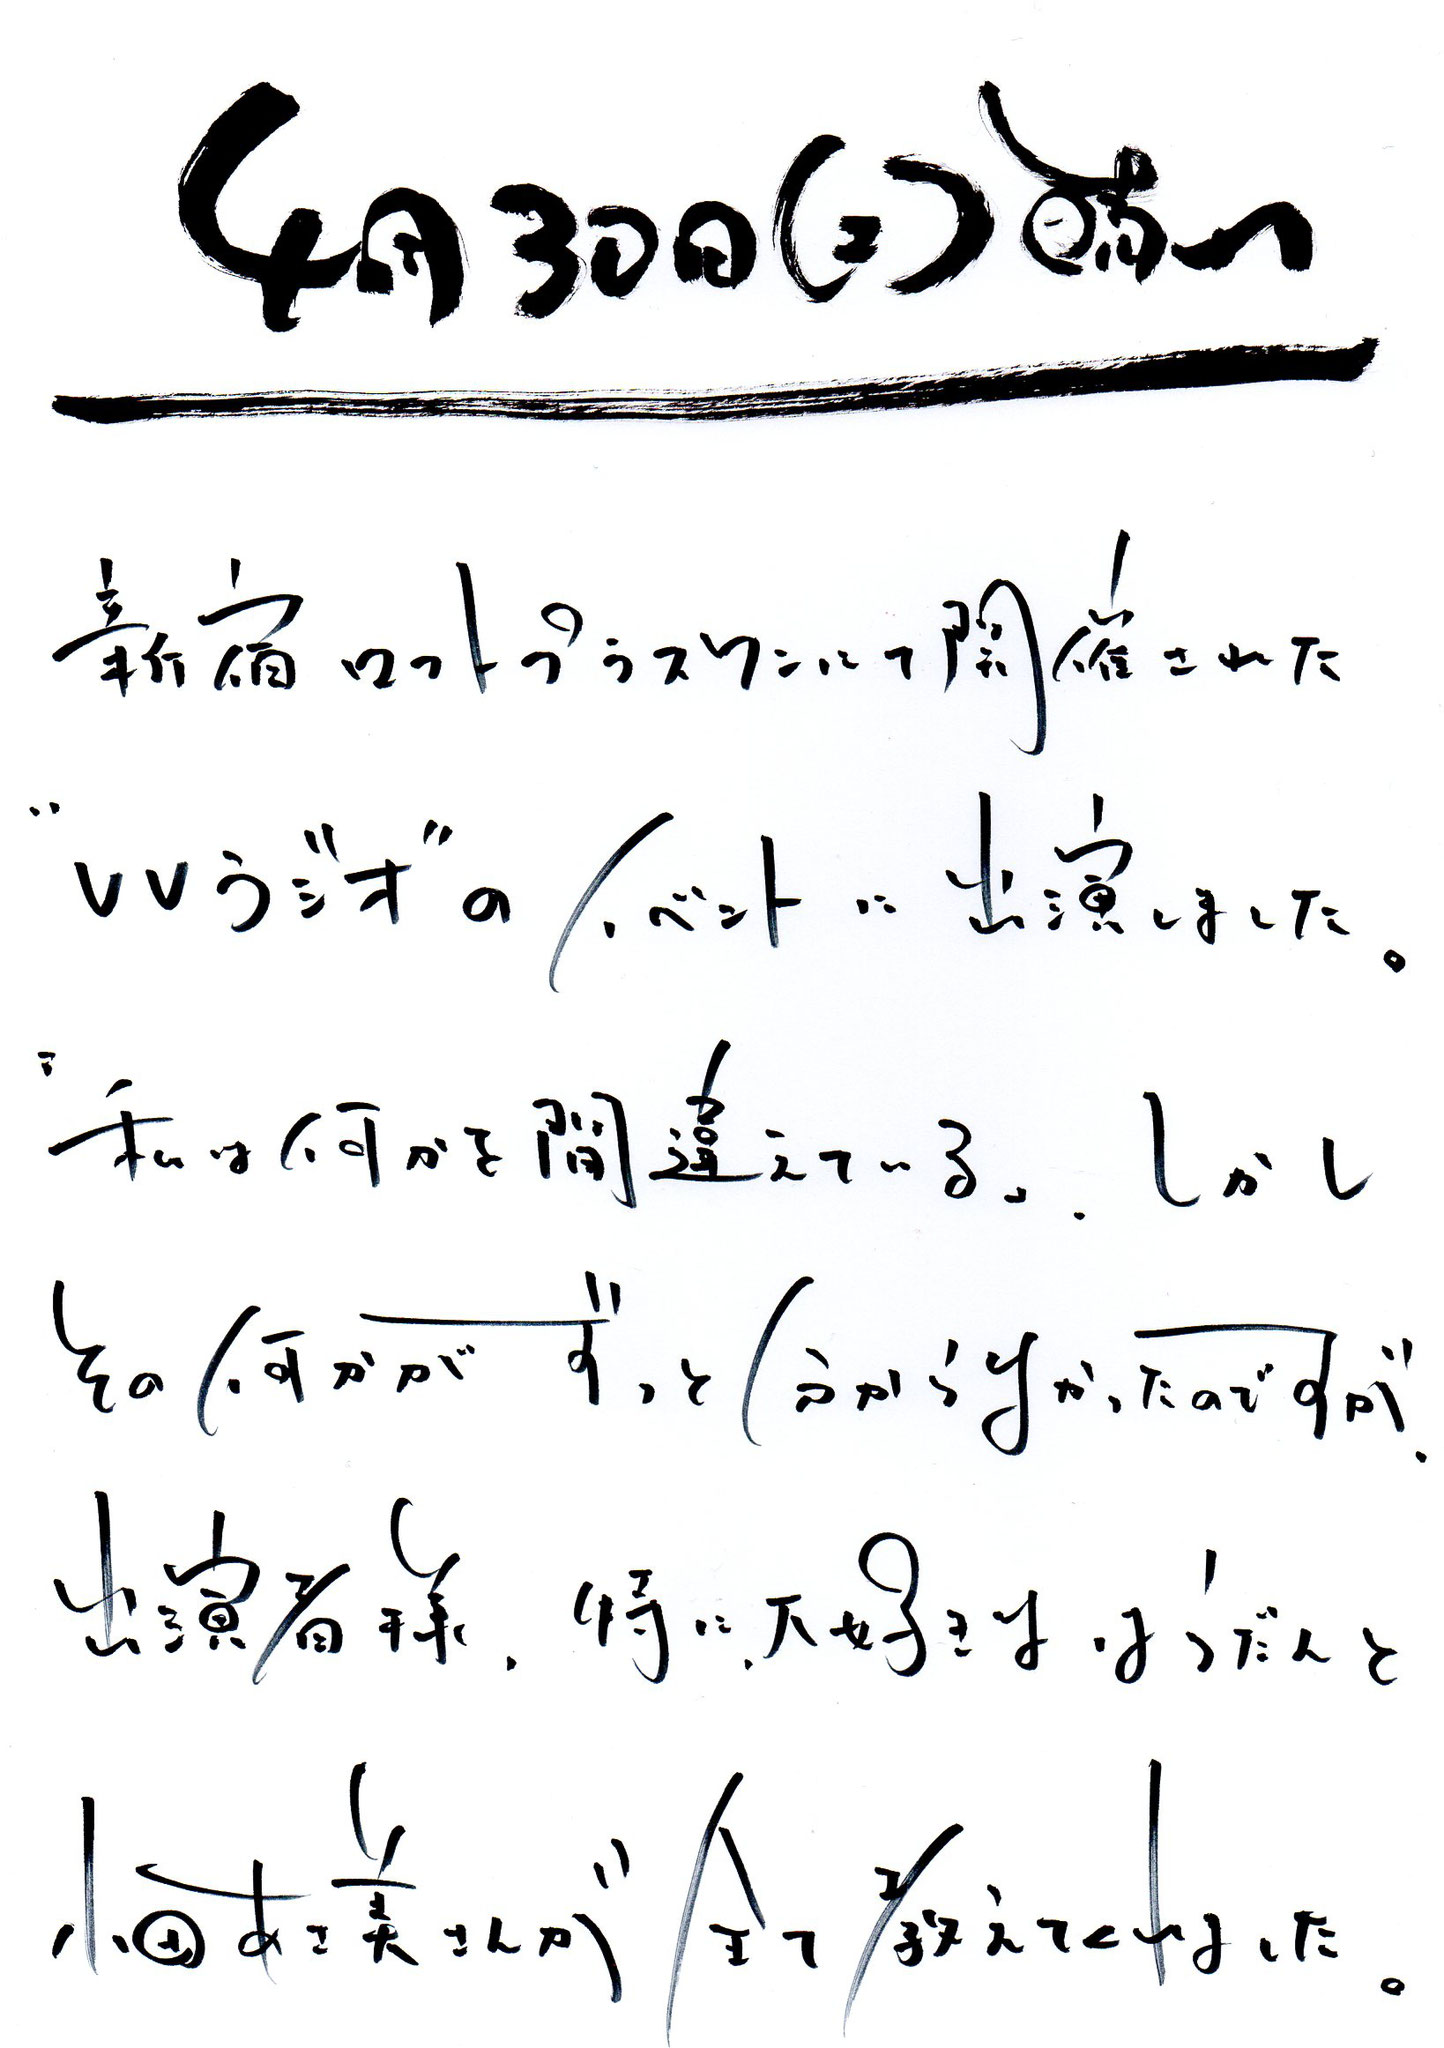 4月30日(土)
新宿ロフトプラスワンにて開催された
"VVラジオ"のイベントに出演しました。
「私は何かを間違えている」、しかし
その何かがずっと分からなかったのですが、
出演者様、特に、大好きな と
小田あさ美さんが全て教えてくれました。